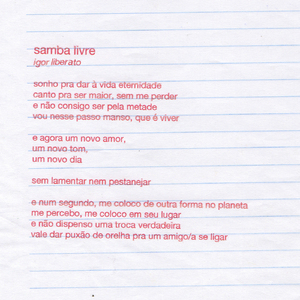 samba livre
igor liberato
sonho pra dar à vida eternidade
canto pra ser maior, sem me perder
e não consigo ser pela metade
vou nesse passo manso, que é viver
e agora um novo amor,
um novo tom,
um novo dia
sem lamentar nem pestanejar
e num segundo, me coloco de outra forma no planeta
me percebo, me coloco em seu lugar
e não dispenso uma troca verdadeira
vale dar puxão de orelha pra um amigo/a se ligar